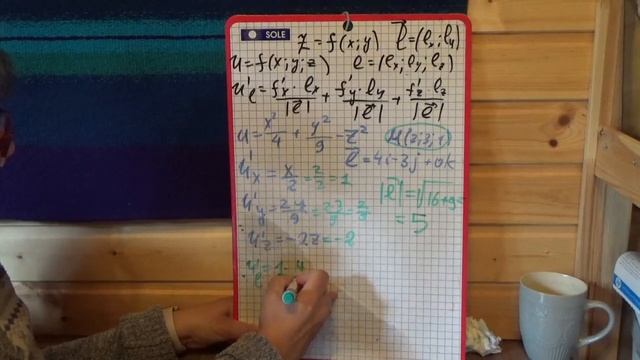 SOLE
z = f(x;y) ℓ⃗ = (ℓx; ℓy)
u = f(x;y;z) ℓ = (ℓx; ℓy; ℓz)
u'ℓ = f'x · ℓx / |ℓ⃗| + f'y · ℓy / |ℓ⃗| + f'z ℓz / |ℓ⃗|
u = x²/4 + y²/9 − z² M(2;3;1)
ℓ⃗ = 4i − 3j + 0k
u'x = x/2 = 2/2 = 1 |ℓ⃗| = √16+9 =
= 5
u'y = 2·y/9 = 2·3/9 = 2/3
u'z = −2z = −2
u'ℓ = 1 · 4